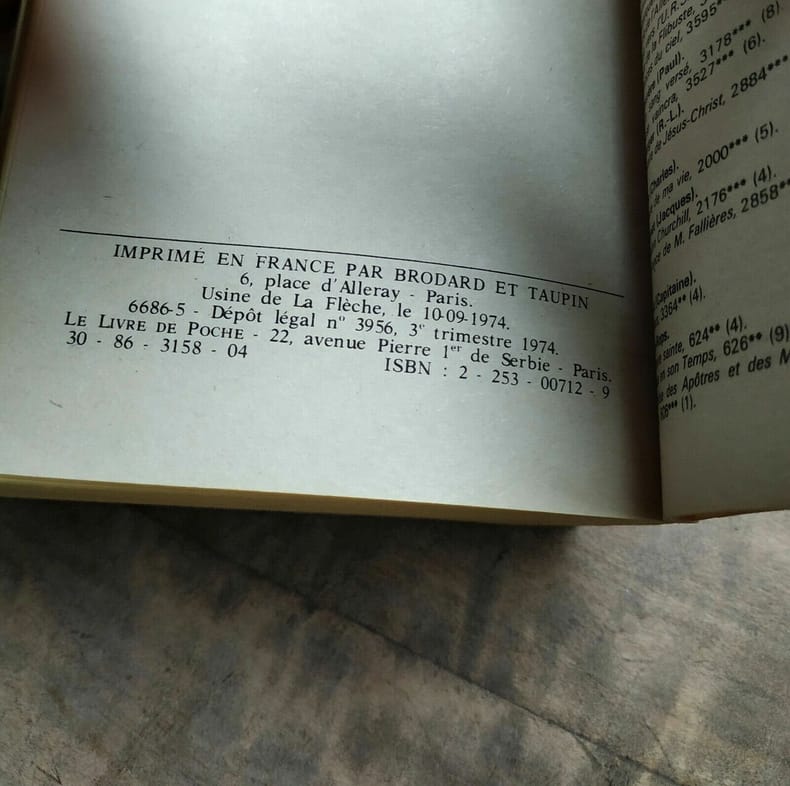 IMPRIMÉ EN FRANCE PAR BRODARD ET TAUPIN
6, place d'Alleray - Paris.
Usine de La Flèche, le 10-09-1974.
6686-5 - Dépôt légal n° 3956, 3e trimestre 1974.
LE LIVRE DE POCHE - 22, avenue Pierre 1er de Serbie - Paris.
30 - 86 - 3158 - 04 ISBN : 2 - 253 - 00712 - 9
la Flibuste, 3
du ciel, 3595***
(Paul).
sang versé, 3178*** (8)
vaincra, 3527*** (6).
(R.-L.).
de Jésus-Christ, 2884***
(Charles).
de ma vie, 2000*** (5).
(Jacques).
Churchill, 2176*** (4).
de M. Fallières, 2858**
(Capitaine).
3364** (4).
sainte, 624** (4).
en son Temps, 626** (9)
des Apôtres et des M
(1).